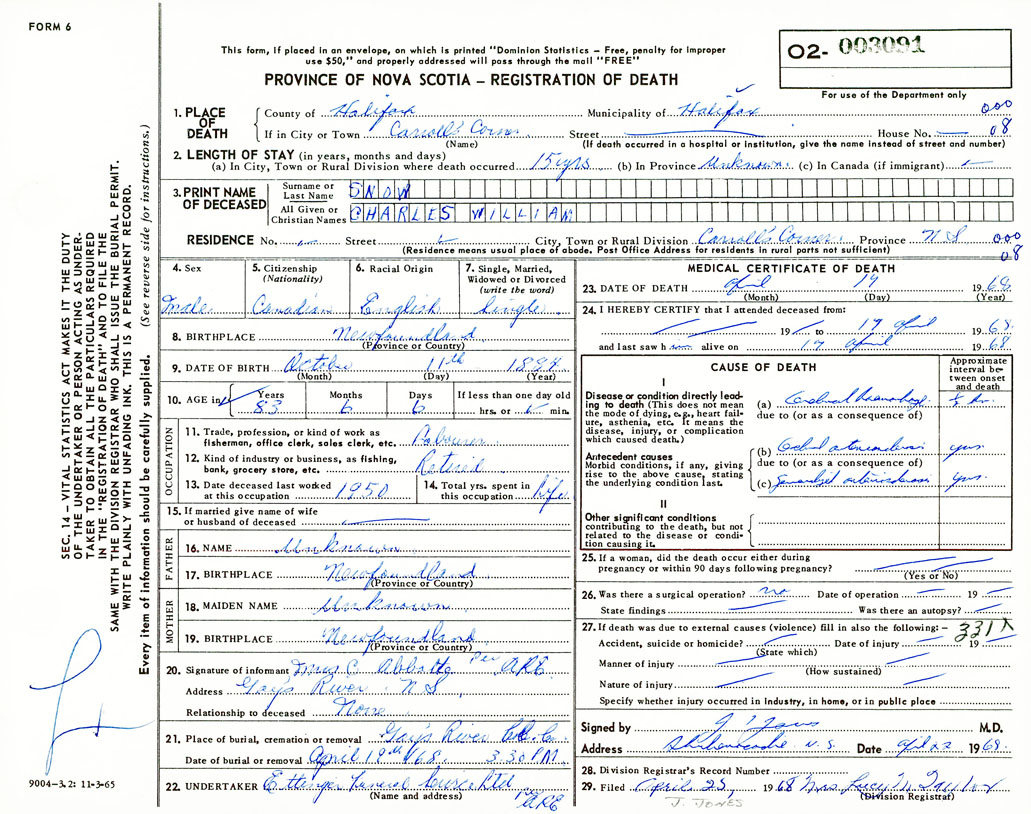 FORM 6
This form, if placed in an envelope, on which is printed "Dominion Statistics – Free, penalty for improper
use $50," and properly addressed will pass through the mail "FREE"
PROVINCE OF NOVA SCOTIA – REGISTRATION OF DEATH
O2- 003091
For use of the Department only
SEC. 14 – VITAL STATISTICS ACT MAKES IT THE DUTY
OF THE UNDERTAKER OR PERSON ACTING AS UNDER-
TAKER TO OBTAIN ALL THE PARTICULARS REQUIRED
IN THE "REGISTRATION OF DEATH" AND TO FILE THE
SAME WITH THE DIVISION REGISTRAR WHO SHALL ISSUE THE BURIAL PERMIT.
WRITE PLAINLY WITH UNFADING INK. THIS IS A PERMANENT RECORD.
Every item of information should be carefully supplied. (See reverse side for instructions.)
1. PLACE OF DEATH
County of Halifax Municipality of Halifax 000
If in City or Town Carroll's Corner Street House No. 08
(Name) (If death occurred in a hospital or institution, give the name instead of street and number)
2. LENGTH OF STAY (in years, months and days)
(a) In City, Town or Rural Division where death occurred 15 yrs (b) In Province Unknown (c) In Canada (if immigrant)
3. PRINT NAME OF DECEASED
Surname or Last Name SNOW
All Given or Christian Names CHARLES WILLIAM
RESIDENCE No. Street City, Town or Rural Division Carroll's Corner Province N S 000
(Residence means usual place of abode. Post Office Address for residents in rural parts not sufficient) 08
4. Sex
Male
5. Citizenship (Nationality)
Canadian
6. Racial Origin
English
7. Single, Married, Widowed or Divorced (write the word)
Single
8. BIRTHPLACE Newfoundland
(Province or Country)
9. DATE OF BIRTH October 11th 1884
(Month) (Day) (Year)
10. AGE in Years Months Days If less than one day old
83 6 6 hrs. or min.
OCCUPATION
11. Trade, profession, or kind of work as
fisherman, office clerk, sales clerk, etc. Labourer
12. Kind of industry or business, as fishing,
bank, grocery store, etc. Retired
13. Date deceased last worked
at this occupation 1950
14. Total yrs. spent in
this occupation life
15. If married give name of wife
or husband of deceased
FATHER
16. NAME Unknown
17. BIRTHPLACE Newfoundland
(Province or Country)
MOTHER
18. MAIDEN NAME Unknown
19. BIRTHPLACE Newfoundland
(Province or Country)
20. Signature of informant Mrs C. Per ARE
Address Gays River N S
Relationship to deceased None
21. Place of burial, cremation or removal Gays River
Date of burial or removal April 19th/68 3.30 PM
22. UNDERTAKER Ettinger Funeral Ltd
(Name and address) Per ARE
9004-3.2: 11-3-65
MEDICAL CERTIFICATE OF DEATH
23. DATE OF DEATH April 17 1968
(Month) (Day) (Year)
24. I HEREBY CERTIFY that I attended deceased from:
19 to 17 April 1968
and last saw h alive on 17 April 1968
CAUSE OF DEATH
Approximate interval between onset and death
I
Disease or condition directly lead-
ing to death (This does not mean
the mode of dying, e.g., heart fail-
ure, asthenia, etc. It means the
disease, injury, or complication
which caused death.)
(a) Cerebral Hemorrhage ½ hr.
due to (or as a consequence of)
Antecedent causes
Morbid conditions, if any, giving
rise to the above cause, stating
the underlying condition last.
(b) yrs
due to (or as a consequence of)
(c) Generalized arteriosclerosis yrs.
II
Other significant conditions
contributing to the death, but not
related to the disease or condi-
tion causing it.
25. If a woman, did the death occur either during
pregnancy or within 90 days following pregnancy?
(Yes or No)
26. Was there a surgical operation? no Date of operation 19
State findings Was there an autopsy?
27. If death was due to external causes (violence) fill in also the following: – 331X
Accident, suicide or homicide? Date of injury 19
(State which)
Manner of injury
(How sustained)
Nature of injury
Specify whether injury occurred in industry, in home, or in public place
Signed by M.D.
Address Shubenacadie N.S. Date April 22 1968
28. Division Registrar's Record Number
29. Filed April 25, 1968 Mrs Lucy M Taylor
(Division Registrar)
J. JONES